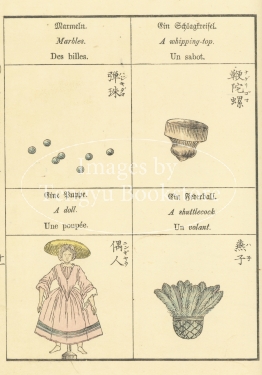 Marmeln.
Marbles.
Des billes.
弾珠
Ein Schlagkreisel.
A whipping-top.
Un sabot.
鞭陀螺
Eine Puppe.
A doll.
Une poupée.
偶人
Ein Federball.
A shuttlecock
Un volant.
燕子
Images by
Tokyu Books